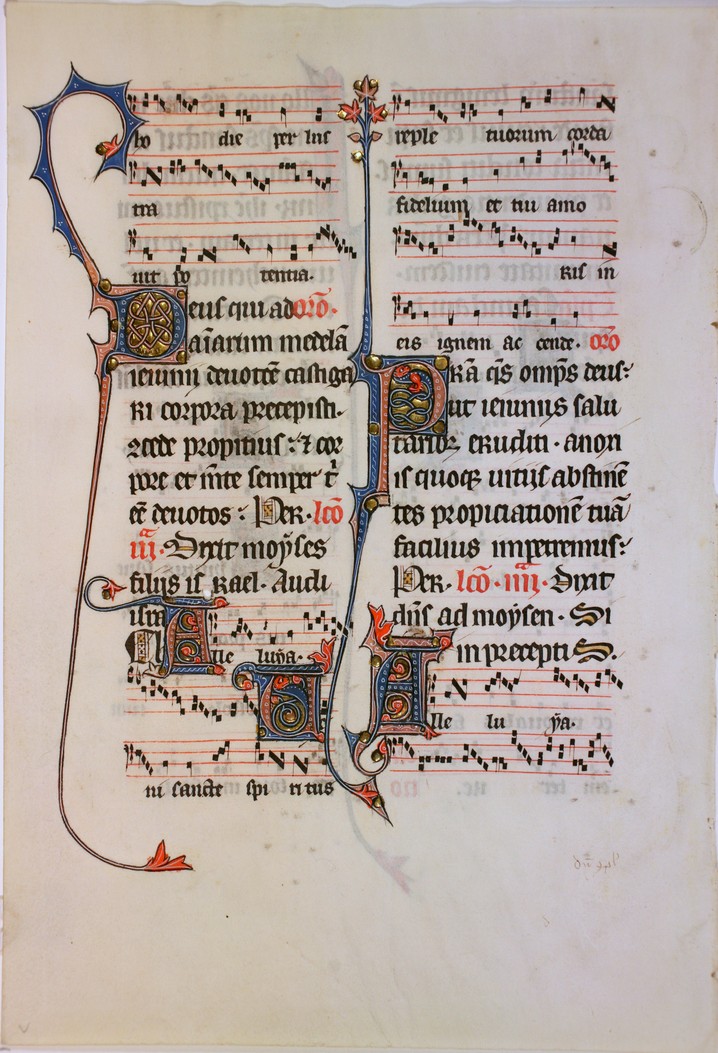 bo die per lus
tra
uit po tentia.
Deus qui ad orõ.
aĩarum medelã
ieiunii deuotõe castiga
ri corpora precepisti.
ꝯcede propitius : ⁊ cor
pore et mẽte semper t̾
eẽ deuotos : Per. lcõ
iii. Dixit moyses
filiis is rael. Audi
isra
Alle luya.
ni sancte spi ritus
reple tuorum corda
fidelium et tui amo
ris in
eis ignem ac cende. orõ
Prã q̃s omp̃s deus:
ut ieiuniis salu
tarib; eruditi. a non
is quoq; uitiis abstinẽ
tes propiciationẽ tuã
facilius impetremus:
Per. lcõ. iiii. Dixit
dñs ad moysen. Si
in precepti S.
Alle lu ya.